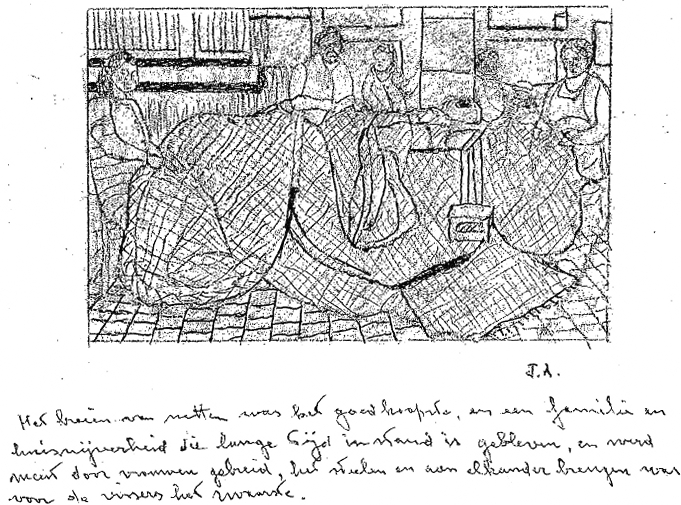 J.A.
Het breien van netten was het goedkoopste, en een familie en
huisnijverheid die lange tijd in stand is gebleven, en werd
meest door vrouwen gebreid, het stellen en aan elkander brengen was
voor de vissers het zwaarste.